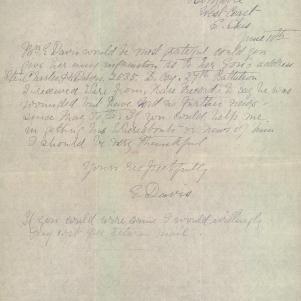 West East
June 10th
Mrs E Davis would be most grateful could you
give her any information as to her son's address
Pte Charles H Davis. 2535. D Coy. 29th Battalion
I received there from, Base Records to say he was
wounded but have had no further news
since May 10th. If you could help me
in getting his whereabouts or news of him
I should be very thankful
Yours respectfully
E Davis
If you could wire same I would willingly
pay cost per return mail